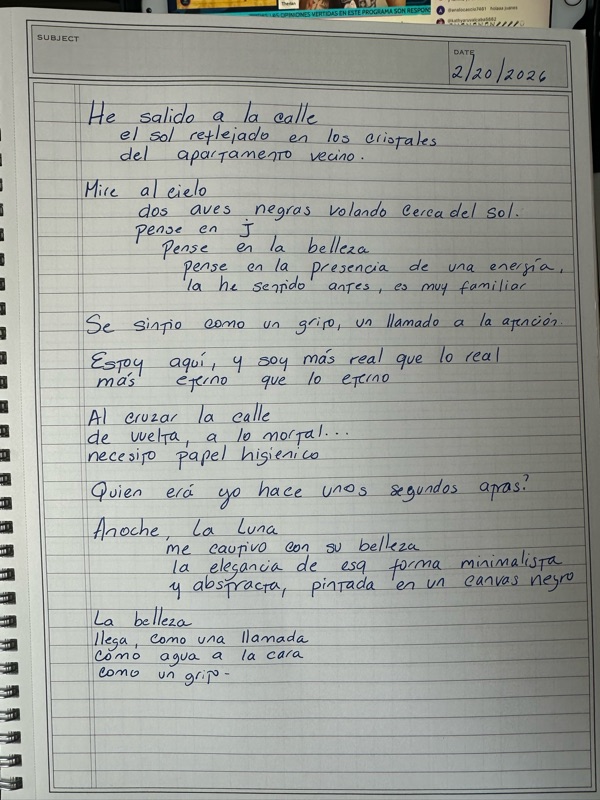 LAS OPINIONES VERTIDAS EN ESTE PROGRAMA SON RESPON
SUBJECT
DATE
2/20/2026
He salido a la calle
el sol reflejado en los cristales
del apartamento vecino.
Mire al cielo
dos aves negras volando cerca del sol.
pense en J
Pense en la belleza
pense en la presencia de una energía,
la he sentido antes, es muy familiar
Se sintio como un grito, un llamado a la atención.
Estoy aquí, y soy más real que lo real
más eterno que lo eterno
Al cruzar la calle
de vuelta, a lo mortal...
necesito papel higienico
Quien erá yo hace unos segundos atras?
Anoche, La Luna
me cautivo con su belleza
la elegancia de esa forma minimalista
y abstracta, pintada en un canvas negro
La belleza
llega, como una llamada
como agua a la cara
como un grito-